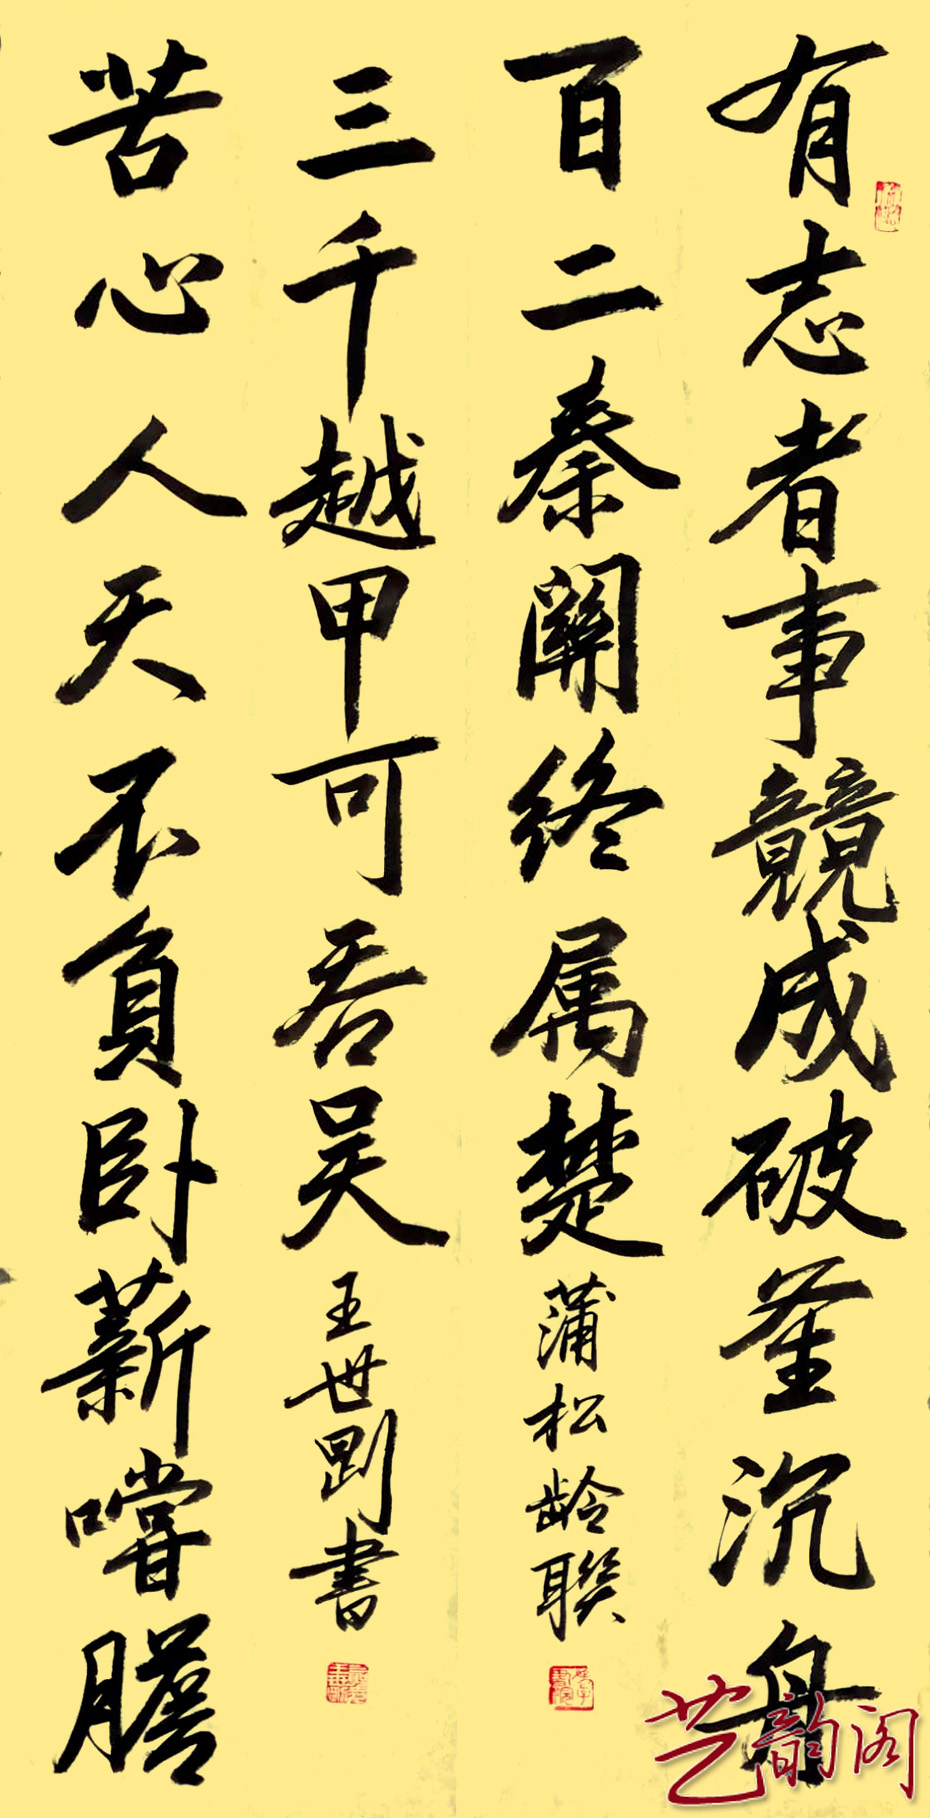 有志者事競成破釜沉舟
百二秦關终属楚
蒲松龄聯
苦心人天不負卧薪嚐膽
三千越甲可吞吴
王世剛書
艺韵阁